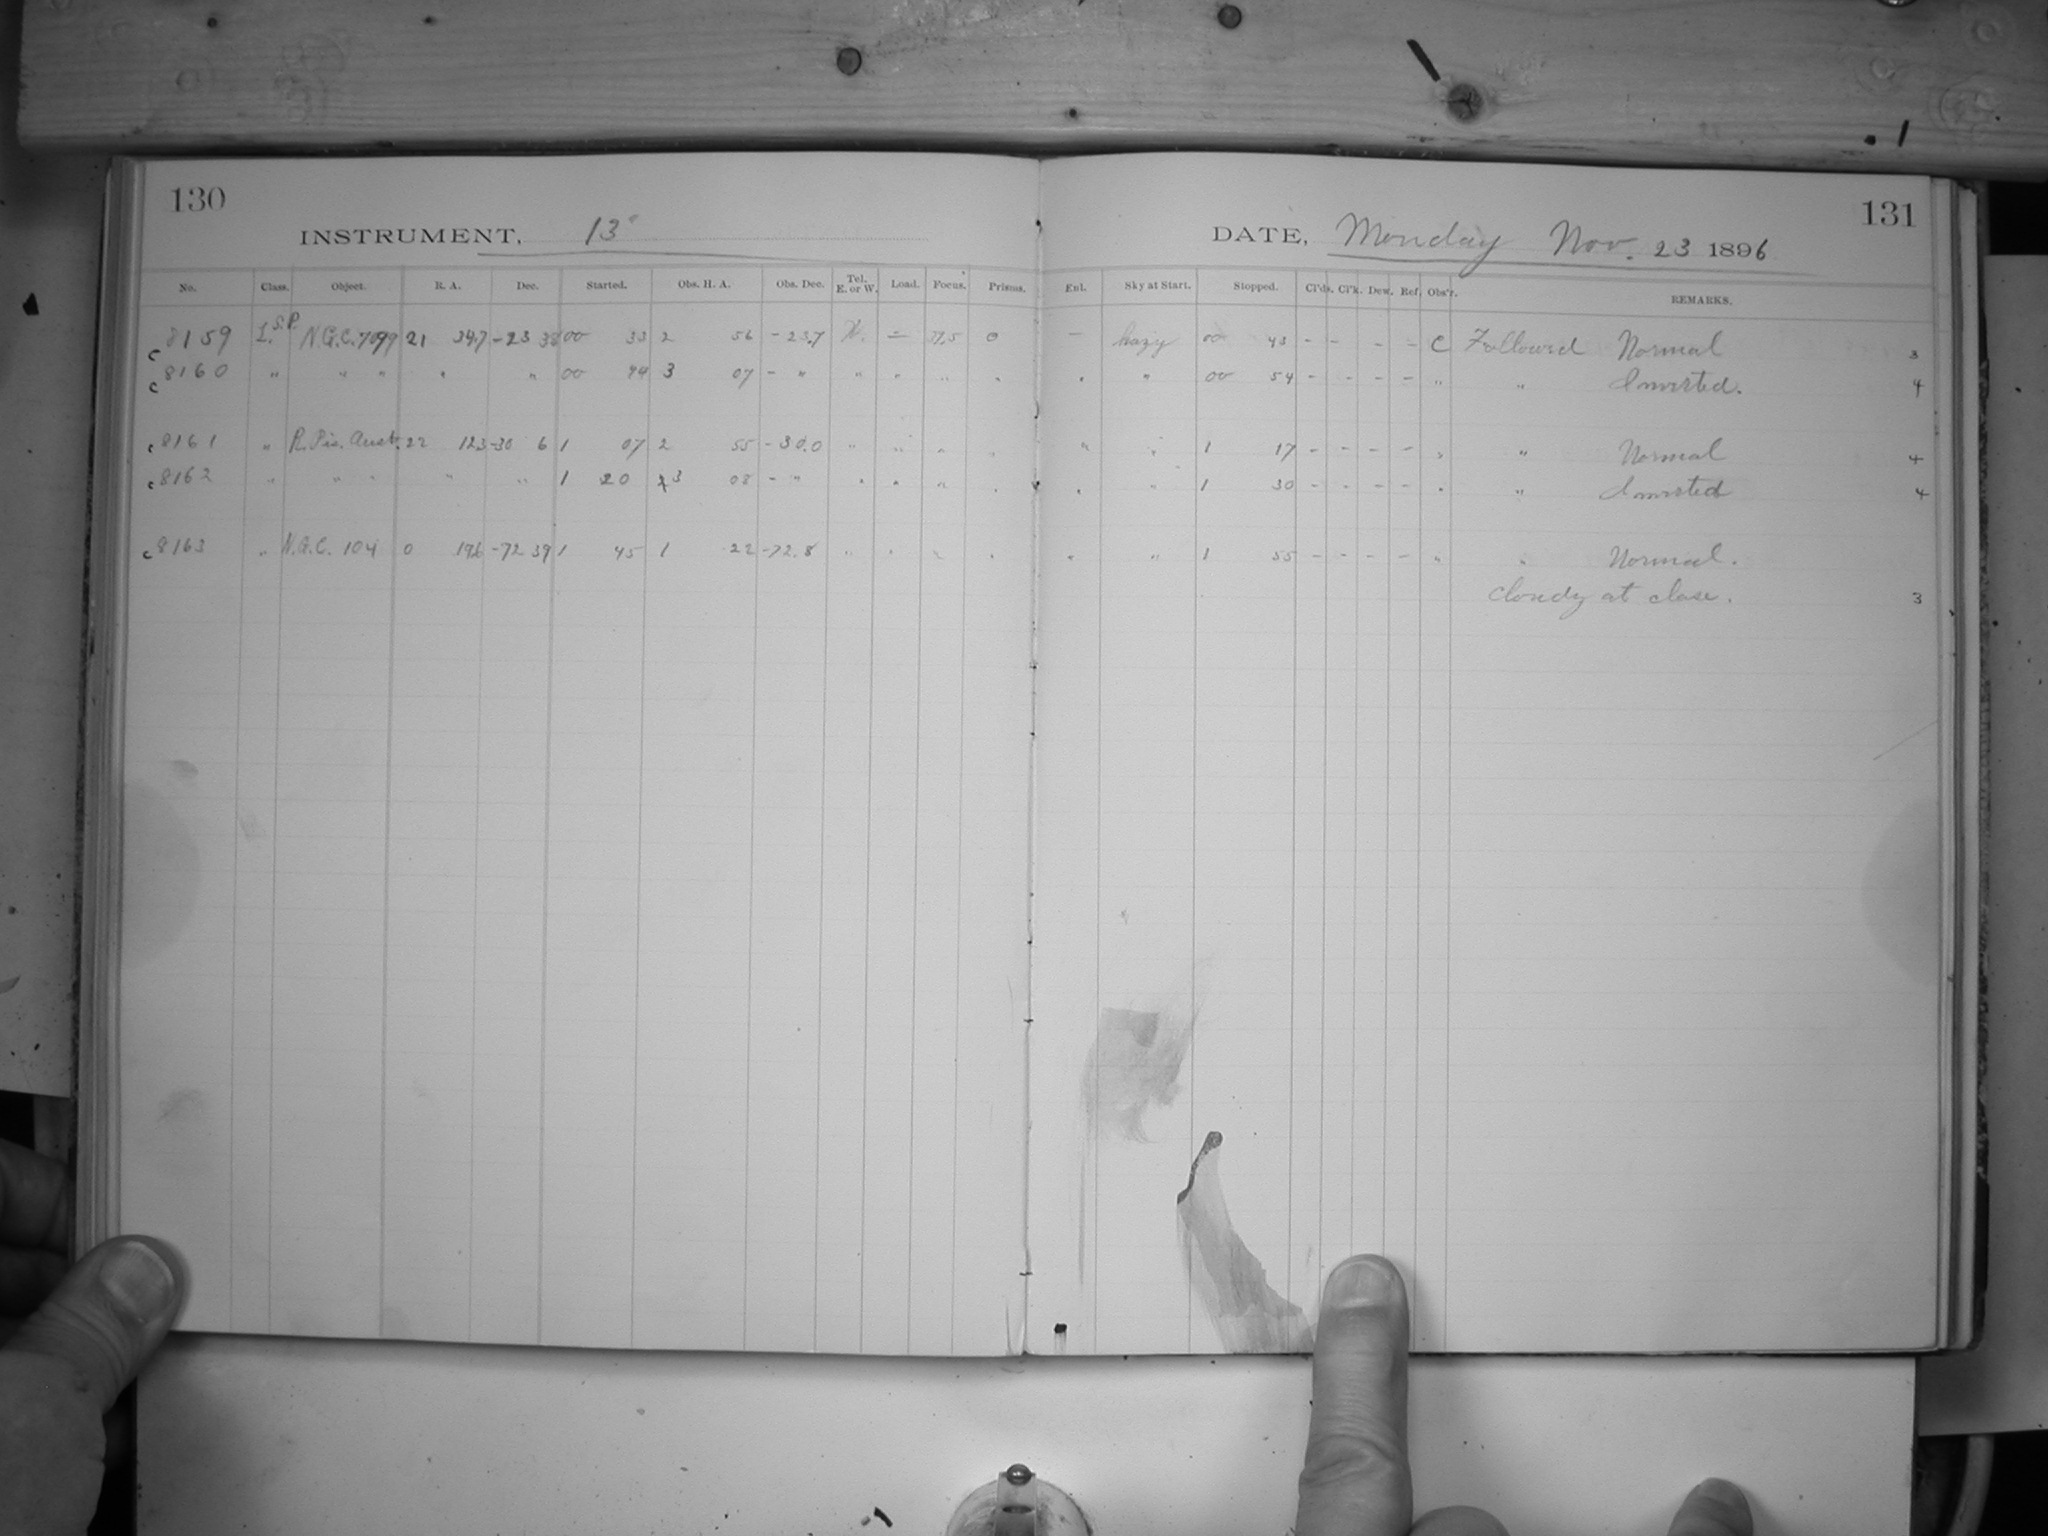 130
INSTRUMENT, 13"
No. Class. Object. R. A. Dec. Started. Obs. H. A. Obs. Dec. Tel. E. or W. Load. Focus. Prisms.
c 8159 1. S.P. N.G.C. 7099 21 34.7 -23 38 00 33 2 56 -23.7 W. — 77.5 0
c 8160 " " " " " 00 44 3 07 - " " " " "
c 8161 " R. Pis. Aust. 22 12.3 -30 6 1 07 2 55 -30.0 " " " "
c 8162 " " " " " 1 20 3 08 - " " " " "
c 8163 " N.G.C. 104 0 19.6 -72 39 1 45 1 22 -72.8 " " " "
131
DATE, Monday Nov. 23 1896
Enl. Sky at Start. Stopped. Cl'ds. Cl'k. Dew. Ref. Obs'r. REMARKS.
— hazy 00 43 - - - - C Followed Normal 3
" " 00 54 - - - - " " Inverted. 4
" " 1 17 - - - - " " Normal 4
" " 1 30 - - - - " " Inverted 4
" " 1 55 - - - - " " Normal.
Cloudy at close. 3